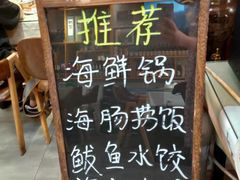 推荐
海鲜锅
海肠捞饭
鲅鱼水饺